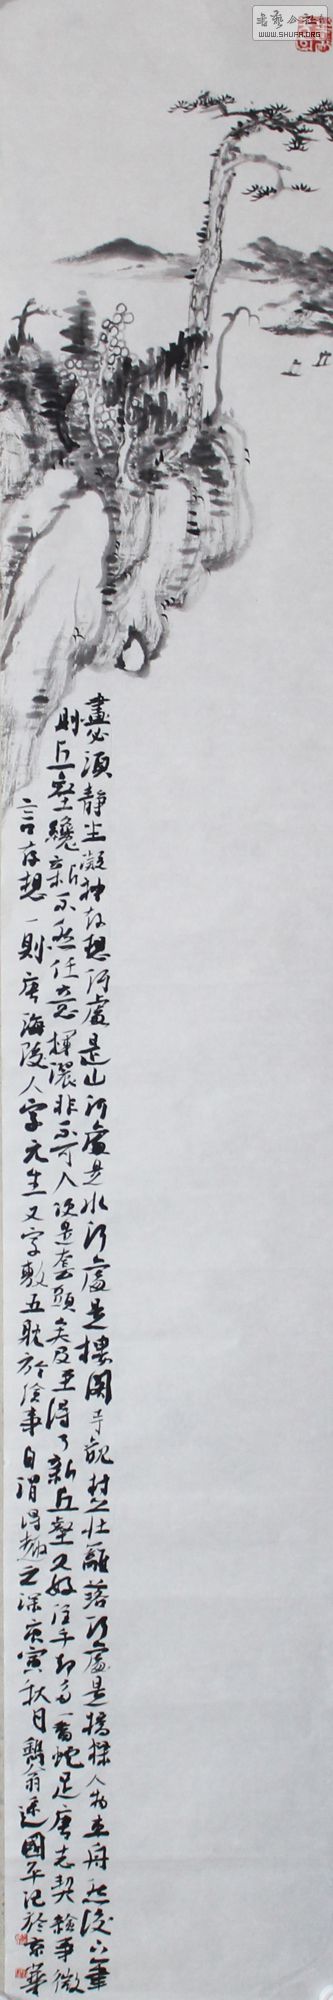 書艺公社
WWW.SHUFA.ORG
畫必須静坐凝神存想何處是山何處是水何處是樓閣寺觀村莊籬落何處是橋樑人物車舟然後下筆
則丘壑纔新不然任意揮灑非不可人便是套頭矣及至得了新丘壑又好住手却多一番蛇足唐志契繪事微
言存想一則唐海陵人字元生又字敷五耽於繪事自謂得趣之深庚寅秋月翁達國平記於京華